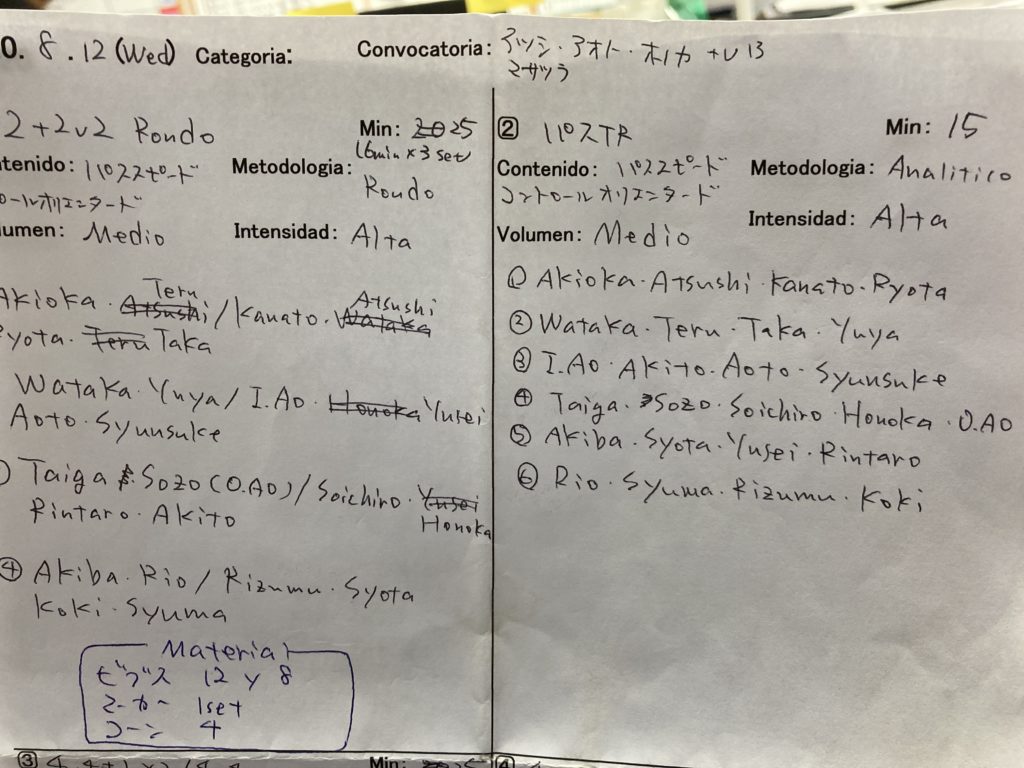 0. 8.12 (Wed) Categoria: Convocatoria: アツシ・アオト・ホノカ +U13
マサツラ
2+2v2 Rondo Min: 2025
(6min×3set)
tenido: パススピード Metodologia: Rondo
ロールオリエンタード
umen: Medio Intensidad: Alta
Akioka・Atsushi Teru/Kanato・Wataka Atsushi
yota・Teru Taka
Wataka・Yuya/I.Ao・Honoka Yusei
Aoto・Syunsuke
Taiga・Sozo(O.AO)/Soichiro・Yusei
Rintaro・Akito Honoka
④ Akiba・Rio/Rizumu・Syota
Koki・Syuma
Material
ビブス 12 y 8
マーカー 1set
コーン 4
② パスTR Min: 15
Contenido: パススピード Metodologia: Analitico
コントロールオリエンタード
Volumen: Medio Intensidad: Alta
① Akioka・Atsushi・Kanato・Ryota
② Wataka・Teru・Taka・Yuya
③ I.AO・Akito・Aoto・Syunsuke
④ Taiga・Sozo・Soichiro・Honoka・O.AO
⑤ Akiba・Syota・Yusei・Rintaro
⑥ Rio・Syuma・Rizumu・Koki
③ Min:
④